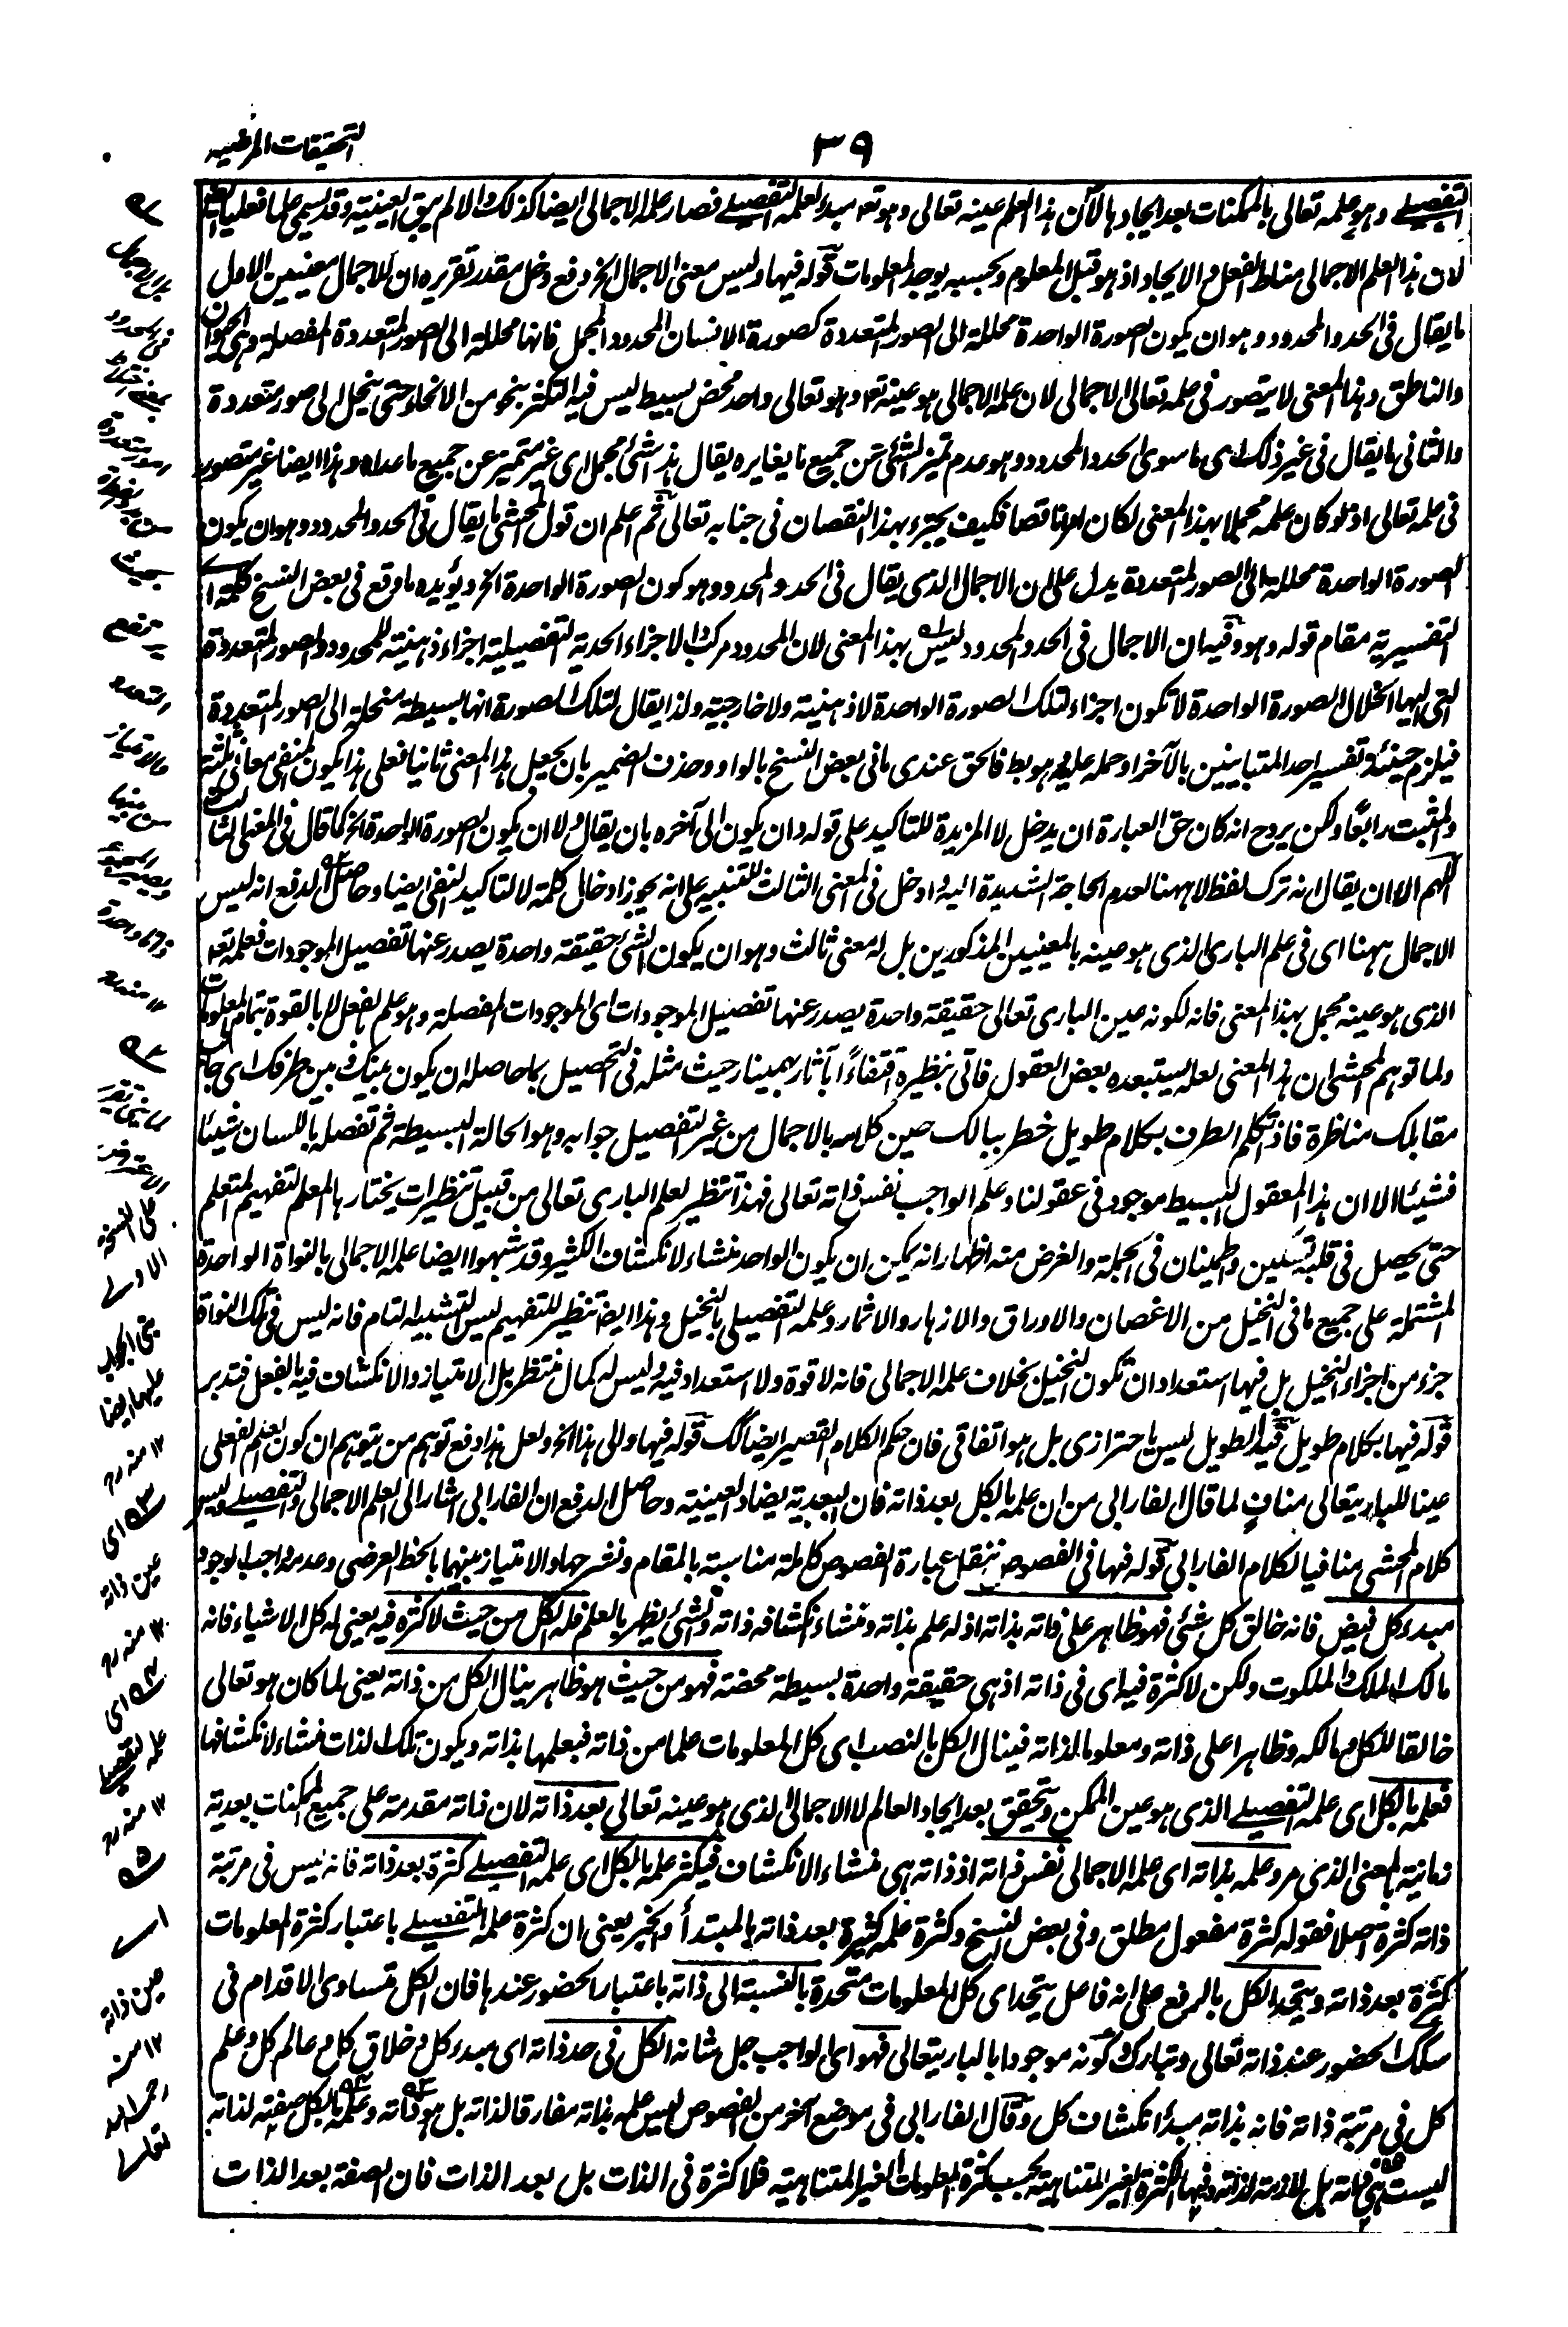 ٣٩
التحقيقات المرضيه
التفصيلے وهو علمه تعالى بالممكنات بعد ايجادها لان هذا العلم عينه تعالى وهو تعم مبدء لعلمه التفصيلے فصار علمه الاجمالى ايضا كذلك والا لم يبق العينية وقد يسمى علما فعليا ايضا
لان هذا العلم الاجمالى مناط الفعل و الايجاد اذ هو قبل المعلوم وبحسبه يوجد المعلومات قوله فيها وليس معنى الاجمال الخ دفع دخل مقدر تقريره ان للاجمال معنيين الاول
ما يقال فى الحد والمحدود وهو ان يكون الصورة الواحدة محللة الى الصور المتعددة كصورة الانسان المحدود المجمل فانها محللة الى الصور المتعددة المفصلة وهى الحيوان
والناطق وهذا المعنى لا يتصور فى علمه تعالى الاجمالى لان علمه الاجمالى هو عينه تعم وهو تعالى واحد محض بسيط ليس فيه التكثر بنحو من الانحاء حتى ينحل الى صور متعددة
والثانى ما يقال فى غير ذلك اى ما سوى الحد والمحدود وهو عدم تميز الشئ عن جميع ما يغايره يقال هذا شئ مجمل اى غير متميز عن جميع ما عداه وهذا ايضا غير متصور
فى علمه تعالى اذ لو كان علمه مجملا بهذا المعنى لكان امرا ناقصا فكيف يجترء بهذا النقصان فى جنابه تعالى ثم اعلم ان قول المحشى ما يقال فى الحد والمحدود وهو ان يكون
الصورة الواحدة محللة الى الصور المتعددة يدل على ان الاجمال الذى يقال فى الحد والمحدود هو كون الصورة الواحدة الخ ويؤيده ما وقع فى بعض النسخ كلمة اى
التفسيرية مقام قوله وهو وفيه ان الاجمال فى الحد والمحدود ليس بهذا المعنى لان المحدود مركب والاجزاء الحدية التفصيلية اجزاء ذهنية للمحدود والصور المتعددة
التى اليها انحلال الصورة الواحدة لا تكون اجزاء لتلك الصورة الواحدة لا ذهنية ولا خارجية ولذا يقال لتلك الصورة انها بسيطة منحلة الى الصور المتعددة
فيلزم حينئذ تفسير احد المتباينين بالآخر او حمله عليه وهو بط فالحق عندى ما فى بعض النسخ بالواو وحذف الضمير بان يجعل هذا المعنى ثانيا فعلى هذا يكون المنفى معانى ثلثة
والمثبت رابعًا ولكن يروح انه كان حق العبارة ان يدخل لا المزيدة للتاكيد على قوله وان يكون الى آخره بان يقال ولا ان يكون الصورة الواحدة الخ كما قال فى المعنى الثالث
اللهم الا ان يقال انه ترك لفظ لا ههنا لعدم الحاجة الشديدة اليه و ادخل فى المعنى الثالث للتنبيه على انه يجوز ادخال كلمة لا لتاكيد النفى ايضا وحاصل الدفع انه ليس
الاجمال ههنا اى فى علم البارى الذى هو عينه بالمعنيين المذكورين بل له معنى ثالث وهو ان يكون الشئ حقيقة واحدة يصدر عنها تفصيل الموجودات فعلمه تعم
الذى هو عينه مجمل بهذا المعنى فانه لكونه عين البارى تعالى حقيقة واحدة يصدر عنها تفصيل الموجودات اى الموجودات المفصلة وهو علم بالفعل لا بالقوة بتمام المعلومات
ولما توهم المحشى ان هذا المعنى لعله يستبعده بعض العقول فاتى بنظيره اقتفاءًا بآثار بهمينار حيث مثله فى التحصيل بما حاصله ان يكون بينك وبين طرفك اى جانب
مقابلك مناظرة فاذا تكلم الطرف بكلام طويل خطر ببالك حين كلامه بالاجمال من غير التفصيل جوابه وهو الحالة البسيطة ثم تفصله باللسان شيئا
فشيئا الا ان هذا المعقول البسيط موجود فى عقولنا وعلم الواجب نفس ذاته تعالى فهذا تنظير لعلم البارى تعالى من قبيل تنظيرات يختارها المعلم لتفهيم المتعلم
حتى يحصل فى قلبه تسكين واطمينان فى الجملة والغرض منه اظهار انه يمكن ان يكون الواحد منشاء لانكشاف الكثير وقد شبهوا ايضا علمه الاجمالى بالنواة الواحدة
المشتملة على جميع ما فى النخيل من الاغصان والاوراق والازهار والاثمار وعلمه التفصيلى بالنخيل وهذا ايضا تنظير للتفهيم ليس التشبيه التام فانه ليس فى تلك النواة
جزء من اجزاء النخيل بل فيها استعداد ان تكون النخيل بخلاف علمه الاجمالى فانه لا قوة ولا استعداد فيه وليس له كمال منتظر بل الامتياز والانكشاف فيه بالفعل فتدبر
قوله فيها بكلام طويل قيد الطويل ليس باحترازى بل هو اتفاقى فان حكم الكلام القصير ايضا كك قوله فيها والى هذا الخ ولعل هذا دفع توهم من يتوهم ان كون العلم الفعلى
عينا للبارى تعالى مناف لما قال الفارابى من ان علمه بالكل بعد ذاته فان البعدية يضاد العينية وحاصل الدفع ان الفارابى اشار الى العلم الاجمالى والتفصيلے وليس
كلام المحشى منافيا لكلام الفارابى قوله فيها فى الفصوص ننقل عبارة الفصوص كاملة مناسبة بالمقام ونشرحها والامتياز بينهما بالخط العرضى وعدمه واجب الوجود
مبدء كل فيض فانه خالق كل شئ فهو ظاهر على ذاته بذاته اذ له علم بذاته ومنشاء انكشافه ذاته والشئ يظهر بالعلم فله الكل من حيث لا كثره فيه يعنى له كل الاشياء فانه
مالك الملك والملكوت ولكن لا كثرة فيه اى فى ذاته اذ هى حقيقة واحدة بسيطة محضة فهو من حيث هو ظاهر ينال الكل من ذاته يعنى لما كان هو تعالى
خالقا للكل و مالكه وظاهرا على ذاته ومعلوما لذاته فينال الكل بالنصب اى كل المعلومات علما من ذاته فيعلمها بذاته ويكون تلك الذات منشاء لانكشافها
فعلمه بالكل اى علمه التفصيلے الذى هو عين الممكن ويتحقق بعد ايجاد العالم لا الاجمالى الذى هو عينه تعالى بعد ذاته لان ذاته مقدمة على جميع الممكنات بعدية
زمانية بالمعنى الذى مر وعلمه بذاته اى علمه الاجمالى نفس ذاته اذ ذاته هى منشاء الانكشاف فيكثر علمه بالكل اى علمه التفصيلے كثرة بعد ذاته فانه ليس فى مرتبة
ذاته كثرة اصلا فقوله كثرة مفعول مطلق وفى بعض النسخ وكثرة علمه كثيرة بعد ذاته بالمبتدأ والخبر يعنى ان كثرة علمه التفصيلے باعتبار كثرة المعلومات
كثرة بعد ذاته ويتحد الكل بالرفع على انه فاعل يتحد اى كل المعلومات متحدة بالنسبة الى ذاته باعتبار الحضور عندها فان الكل متساوى الاقدام فى
سلك الحضور عند ذاته تعالى وتبارك و كونه موجودا بالبارى تعالى فهو اى الواجب جل شانه الكل فى حد ذاته اى مبدء كل و خلاق كل و عالم كل وعلم
كل فى مرتبة ذاته فانه بذاته مبدأ انكشاف كل وقال الفارابى فى موضع آخر من الفصوص ليس علمه بذاته مفارقا لذاته بل هو ذاته وعلمه بالكل صفة لذاته
ليست هى ذاته بل لازمة لذاته وفيها الكثرة الغير المتناهية بحسب كثرة المعلومات الغير المتناهية فلا كثرة فى الذات بل بعد الذات فان الصفة بعد الذات
صور متعددة
بحيث
ذات واحدة
١٢ منه
على النسخة
الاولى
عليهما ايضا
١٢ منه رح
اى
عين ذاته
١٢ منه رح
اى
علمه التفصيلى
١٢ منه رح
اے
عين ذاته
١٢ منه
رحمه الله
تعالے